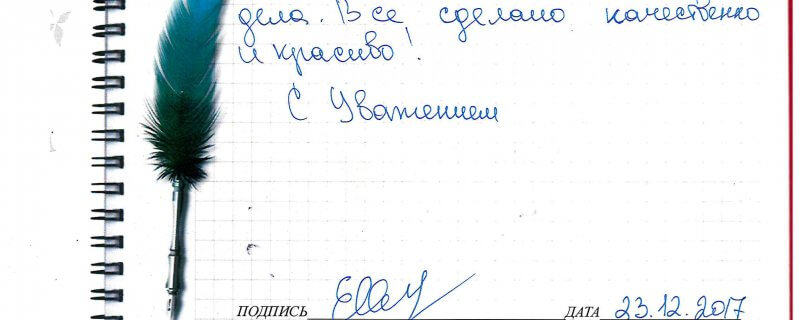 дела. Все сделано качественно
и красиво!
С Уважением
ПОДПИСЬ ДАТА 23.12.2017